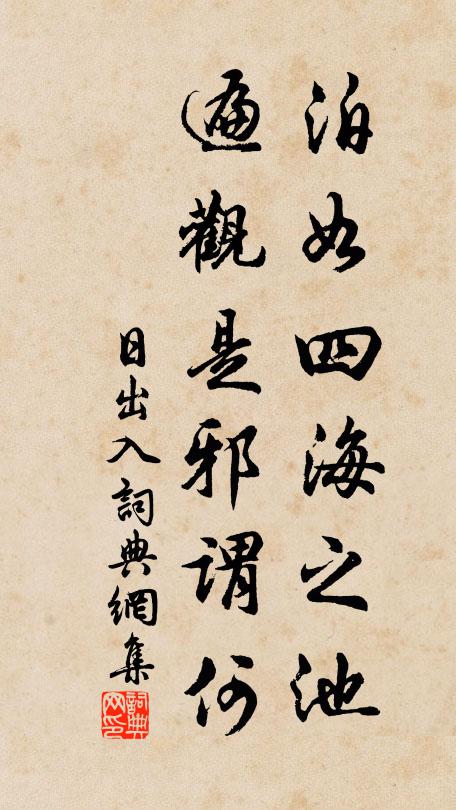 泊如四海之池
遍觀是邪謂何
日出入詞典網集
詞典网印